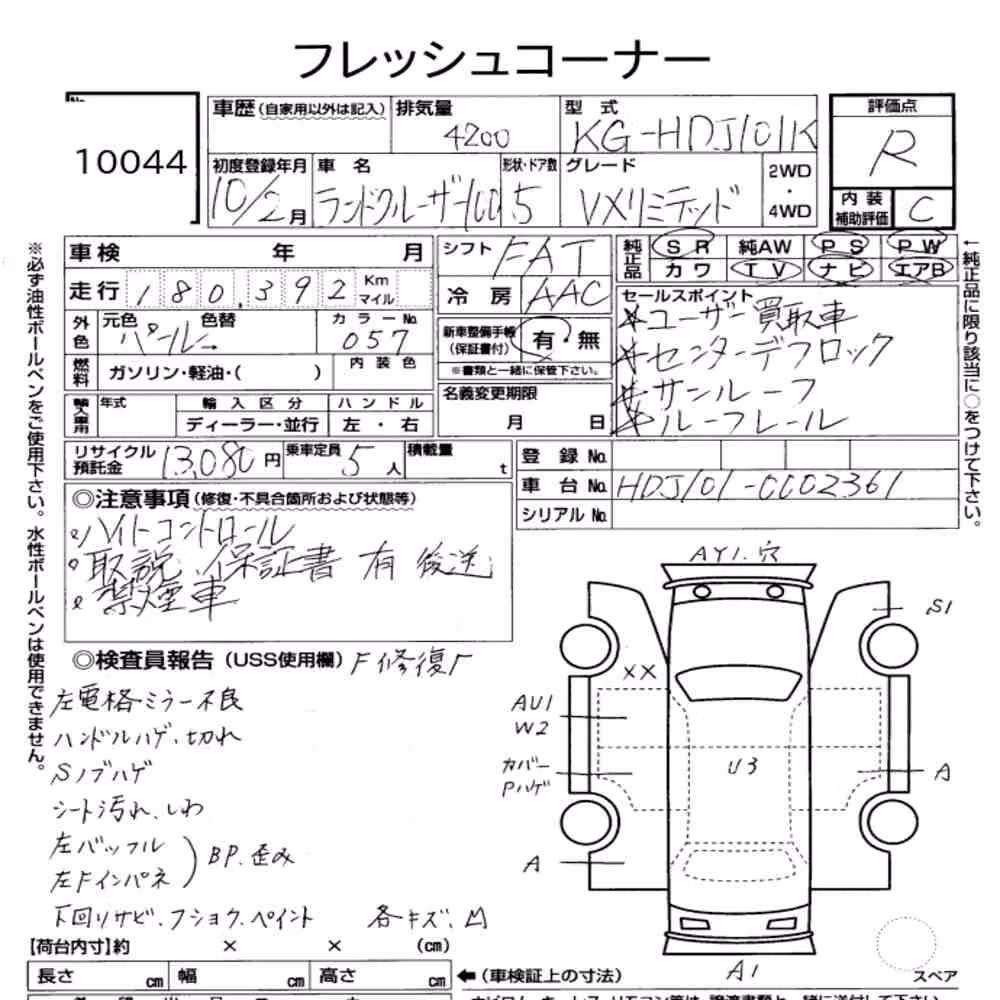 フレッシュコーナー
No.
10044
車歴(自家用以外は記入)
排気量
4200
型 式
KG-HDJ101K
評価点
R
初度登録年月
10/2月
車 名
ランドクルーザー100
形状・ドア数
5
グレード
VXリミテッド
2WD
・
4WD
内 装
補助評価
C
車検 年 月
シフト
FAT
純正品
SR 純AW PS PW
カワ TV ナビ エアB
走行 180,392 Km マイル
冷 房
AAC
セールスポイント
ユーザー買取車
センターデフロック
サンルーフ
ルーフレール
外色
元色 色替
パール
カラーNo.
057
新車整備手帳
(保証書付)
有・無
※書類と一緒に保管下さい。
燃料
ガソリン・軽油・( )
内 装 色
名義変更期限
月 日
輸入車用
年式
輸 入 区 分
ディーラー・並行
ハ ン ド ル
左 ・ 右
リサイクル
預託金
13,080円
乗車定員
5人
積載量
t
登 録 No.
車 台 No.
HDJ101-0002361
シリアル No.
◎注意事項(修復・不具合箇所および状態等)
ハイトコントロール
取説、保証書 有 後送
禁煙車
※必ず油性ボールペンをご使用下さい。水性ボールペンは使用できません。
←純正品に限り該当に○をつけて下さい。
◎検査員報告(USS使用欄) F修復ｱ
左電格ミラー不良
ハンドルハゲ、切れ
Sノブハゲ
シート汚れ、しわ
左バッフル
左Fインパネ
BP、歪み
下回りサビ、フショク、ペイント 各キズ、凹
AY1.穴
S1
XX
AU1
W2
カバー
Pハゲ
U3
A
A
A1
スペア
【荷台内寸】約 × × (cm)
長さ cm 幅 cm 高さ cm
←(車検証上の寸法)